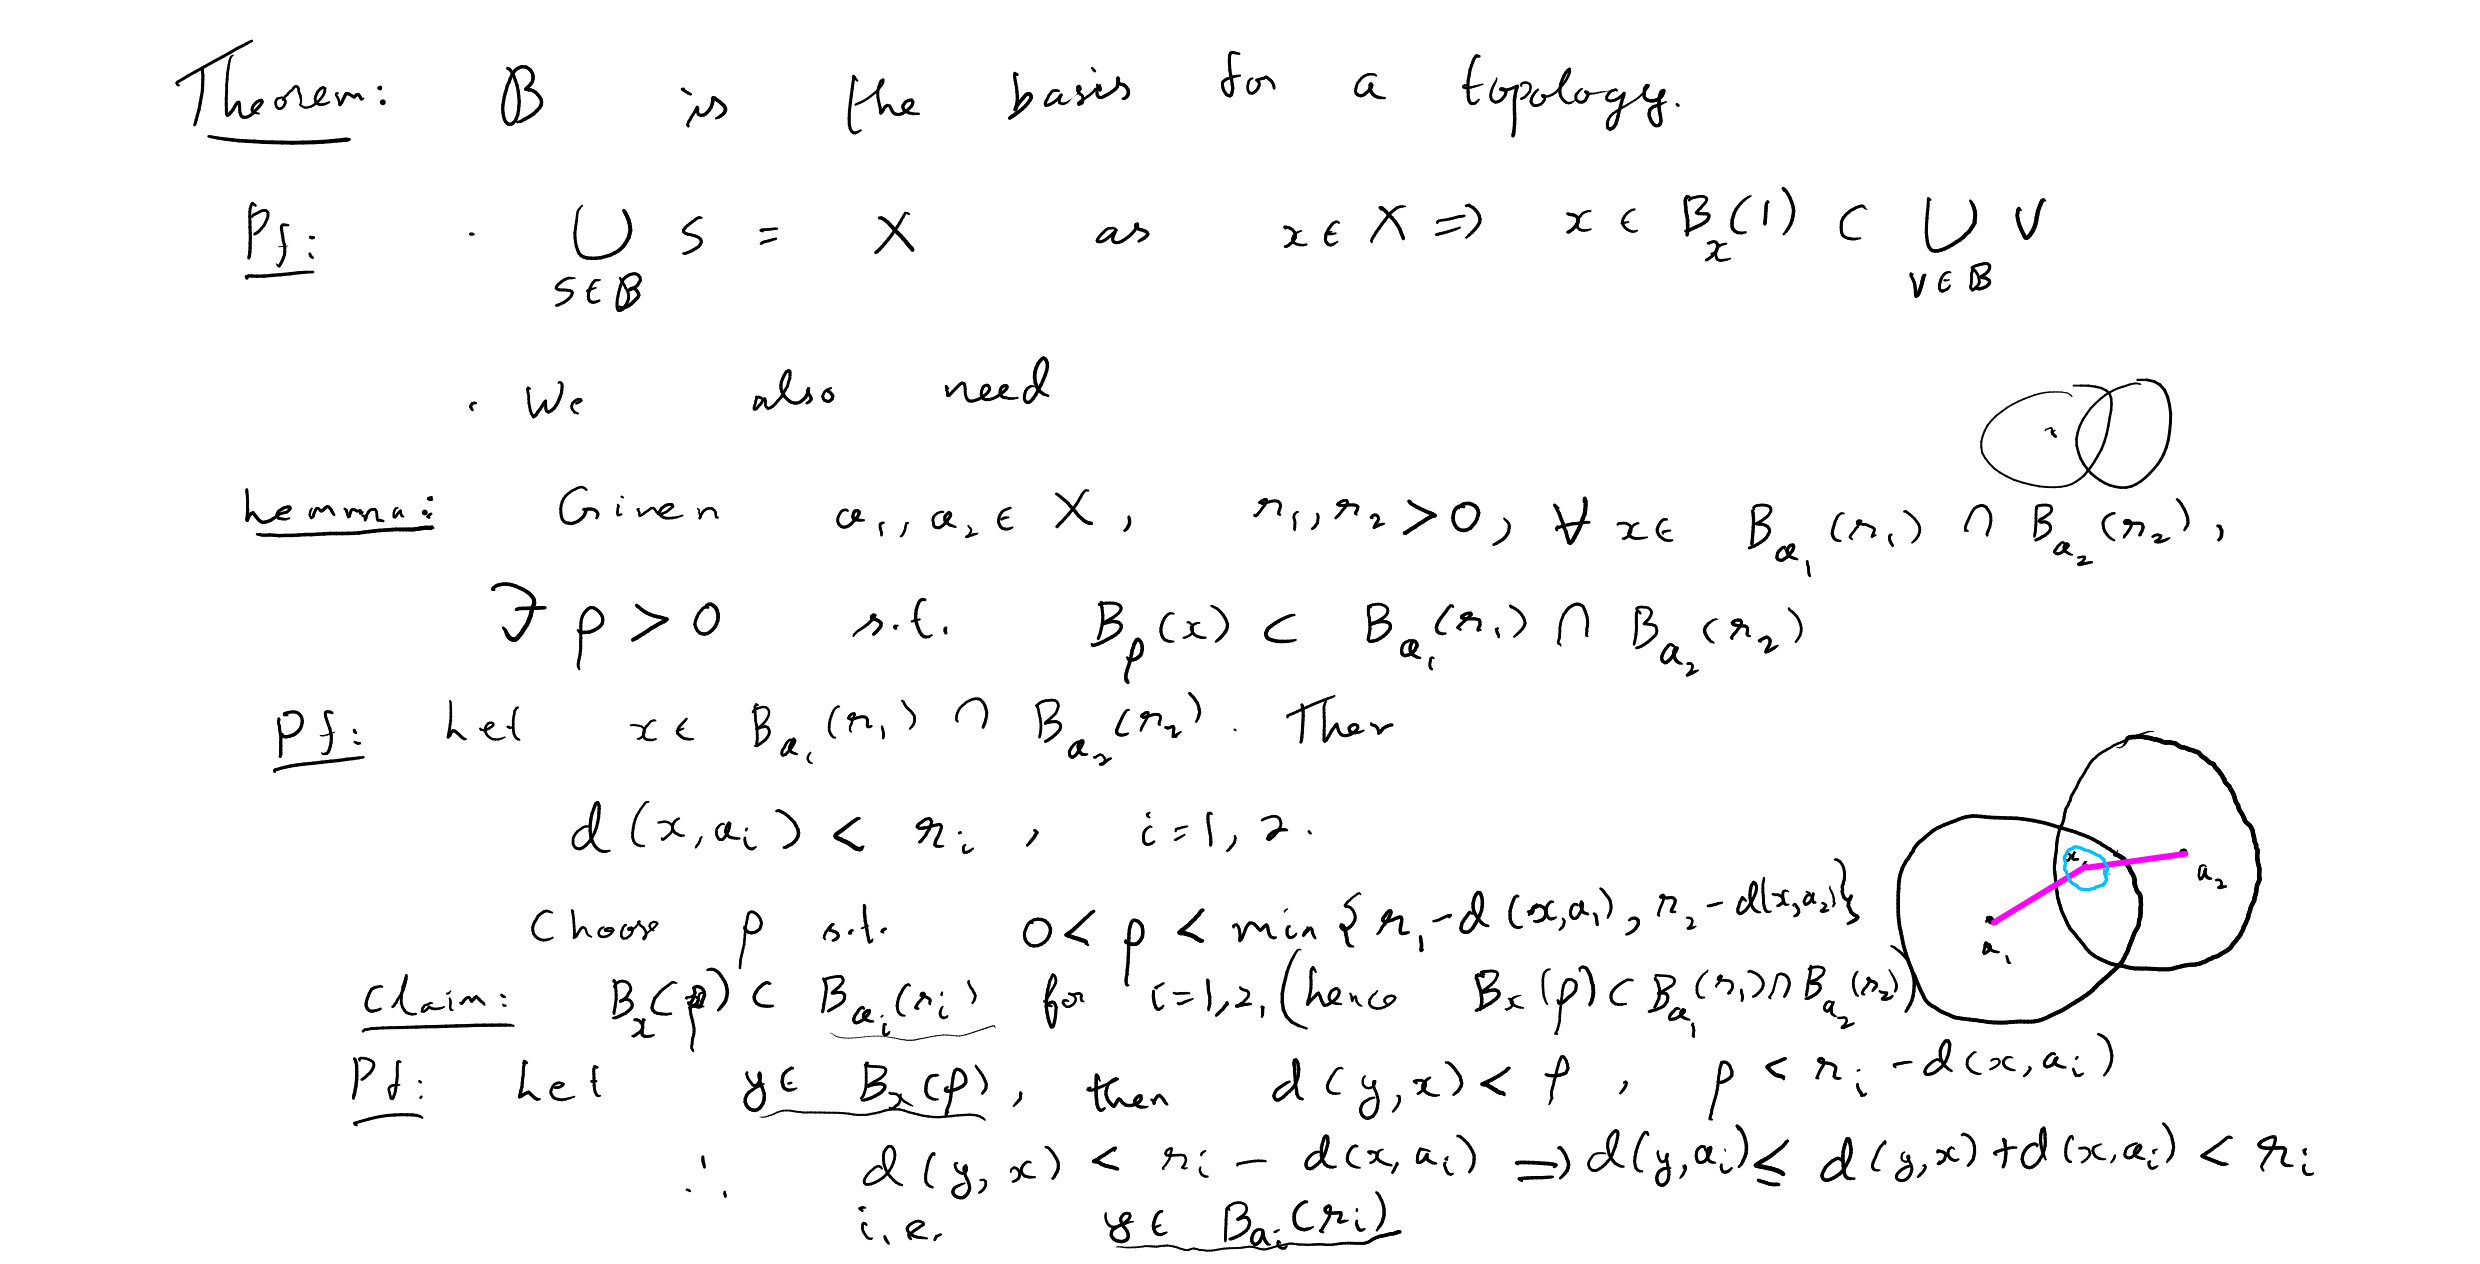 Theorem: 𝔅 is the basis for a topology.
Pf: · ⋃_{S∈𝔅} S = X as x∈X ⇒ x ∈ B_x(1) ⊂ ⋃_{V∈𝔅} V
· We also need
Lemma: Given a₁, a₂ ∈ X, r₁, r₂ > 0, ∀ x∈ B_{a₁}(r₁) ∩ B_{a₂}(r₂),
∃ ρ > 0 s.t. B_ρ(x) ⊂ B_{a₁}(r₁) ∩ B_{a₂}(r₂)
Pf: Let x∈ B_{a₁}(r₁) ∩ B_{a₂}(r₂). Then
d(x, a_i) < r_i , i=1,2.
Choose ρ s.t. 0 < ρ < min {r₁-d(x,a₁), r₂-d(x,a₂)}
x
a₂
a₁
Claim: B_x(ρ) ⊂ B_{a_i}(r_i) for i=1,2, (hence B_x(ρ) ⊂ B_{a₁}(r₁) ∩ B_{a₂}(r₂))
Pf: Let y∈ B_x(ρ), then d(y,x) < ρ , ρ < r_i - d(x, a_i)
∴ d(y,x) < r_i - d(x, a_i) ⇒ d(y,a_i) ≤ d(y,x) + d(x,a_i) < r_i
i.e. y∈ B_{a_i}(r_i)